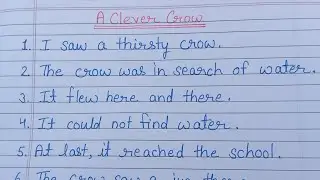 A Clever Crow
1. I saw a thirsty crow.
2. The crow was in search of water.
3. It flew here and there.
4. It could not find water.
5. At last, it reached the school.
6. The crow saw a